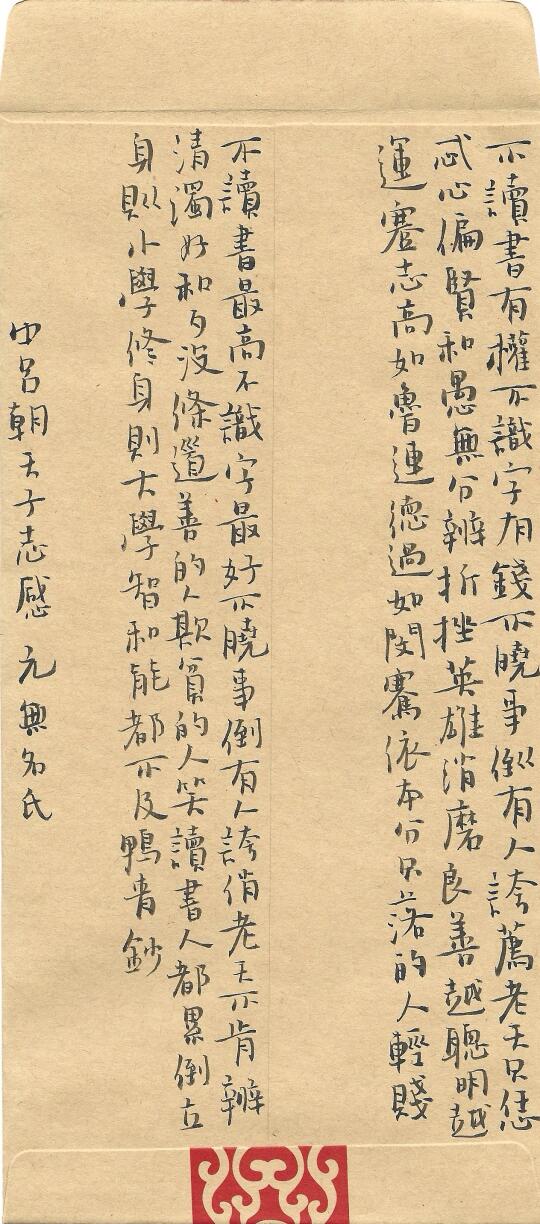 不讀書有權不識字有錢不曉事倒有人誇薦老天只恁
忒心偏賢和愚無分辨折挫英雄消磨良善越聰明越
運蹇志高如魯連德過如閔騫依本分只落的人輕賤
不讀書最高不識字最好不曉事倒有人誇俏老天不肯辨
清濁好和歹沒條道善的人欺貧的人笑讀書人都累倒立
身則小學修身則大學智和能都不及鴨青鈔
中呂朝天子志感 元無名氏